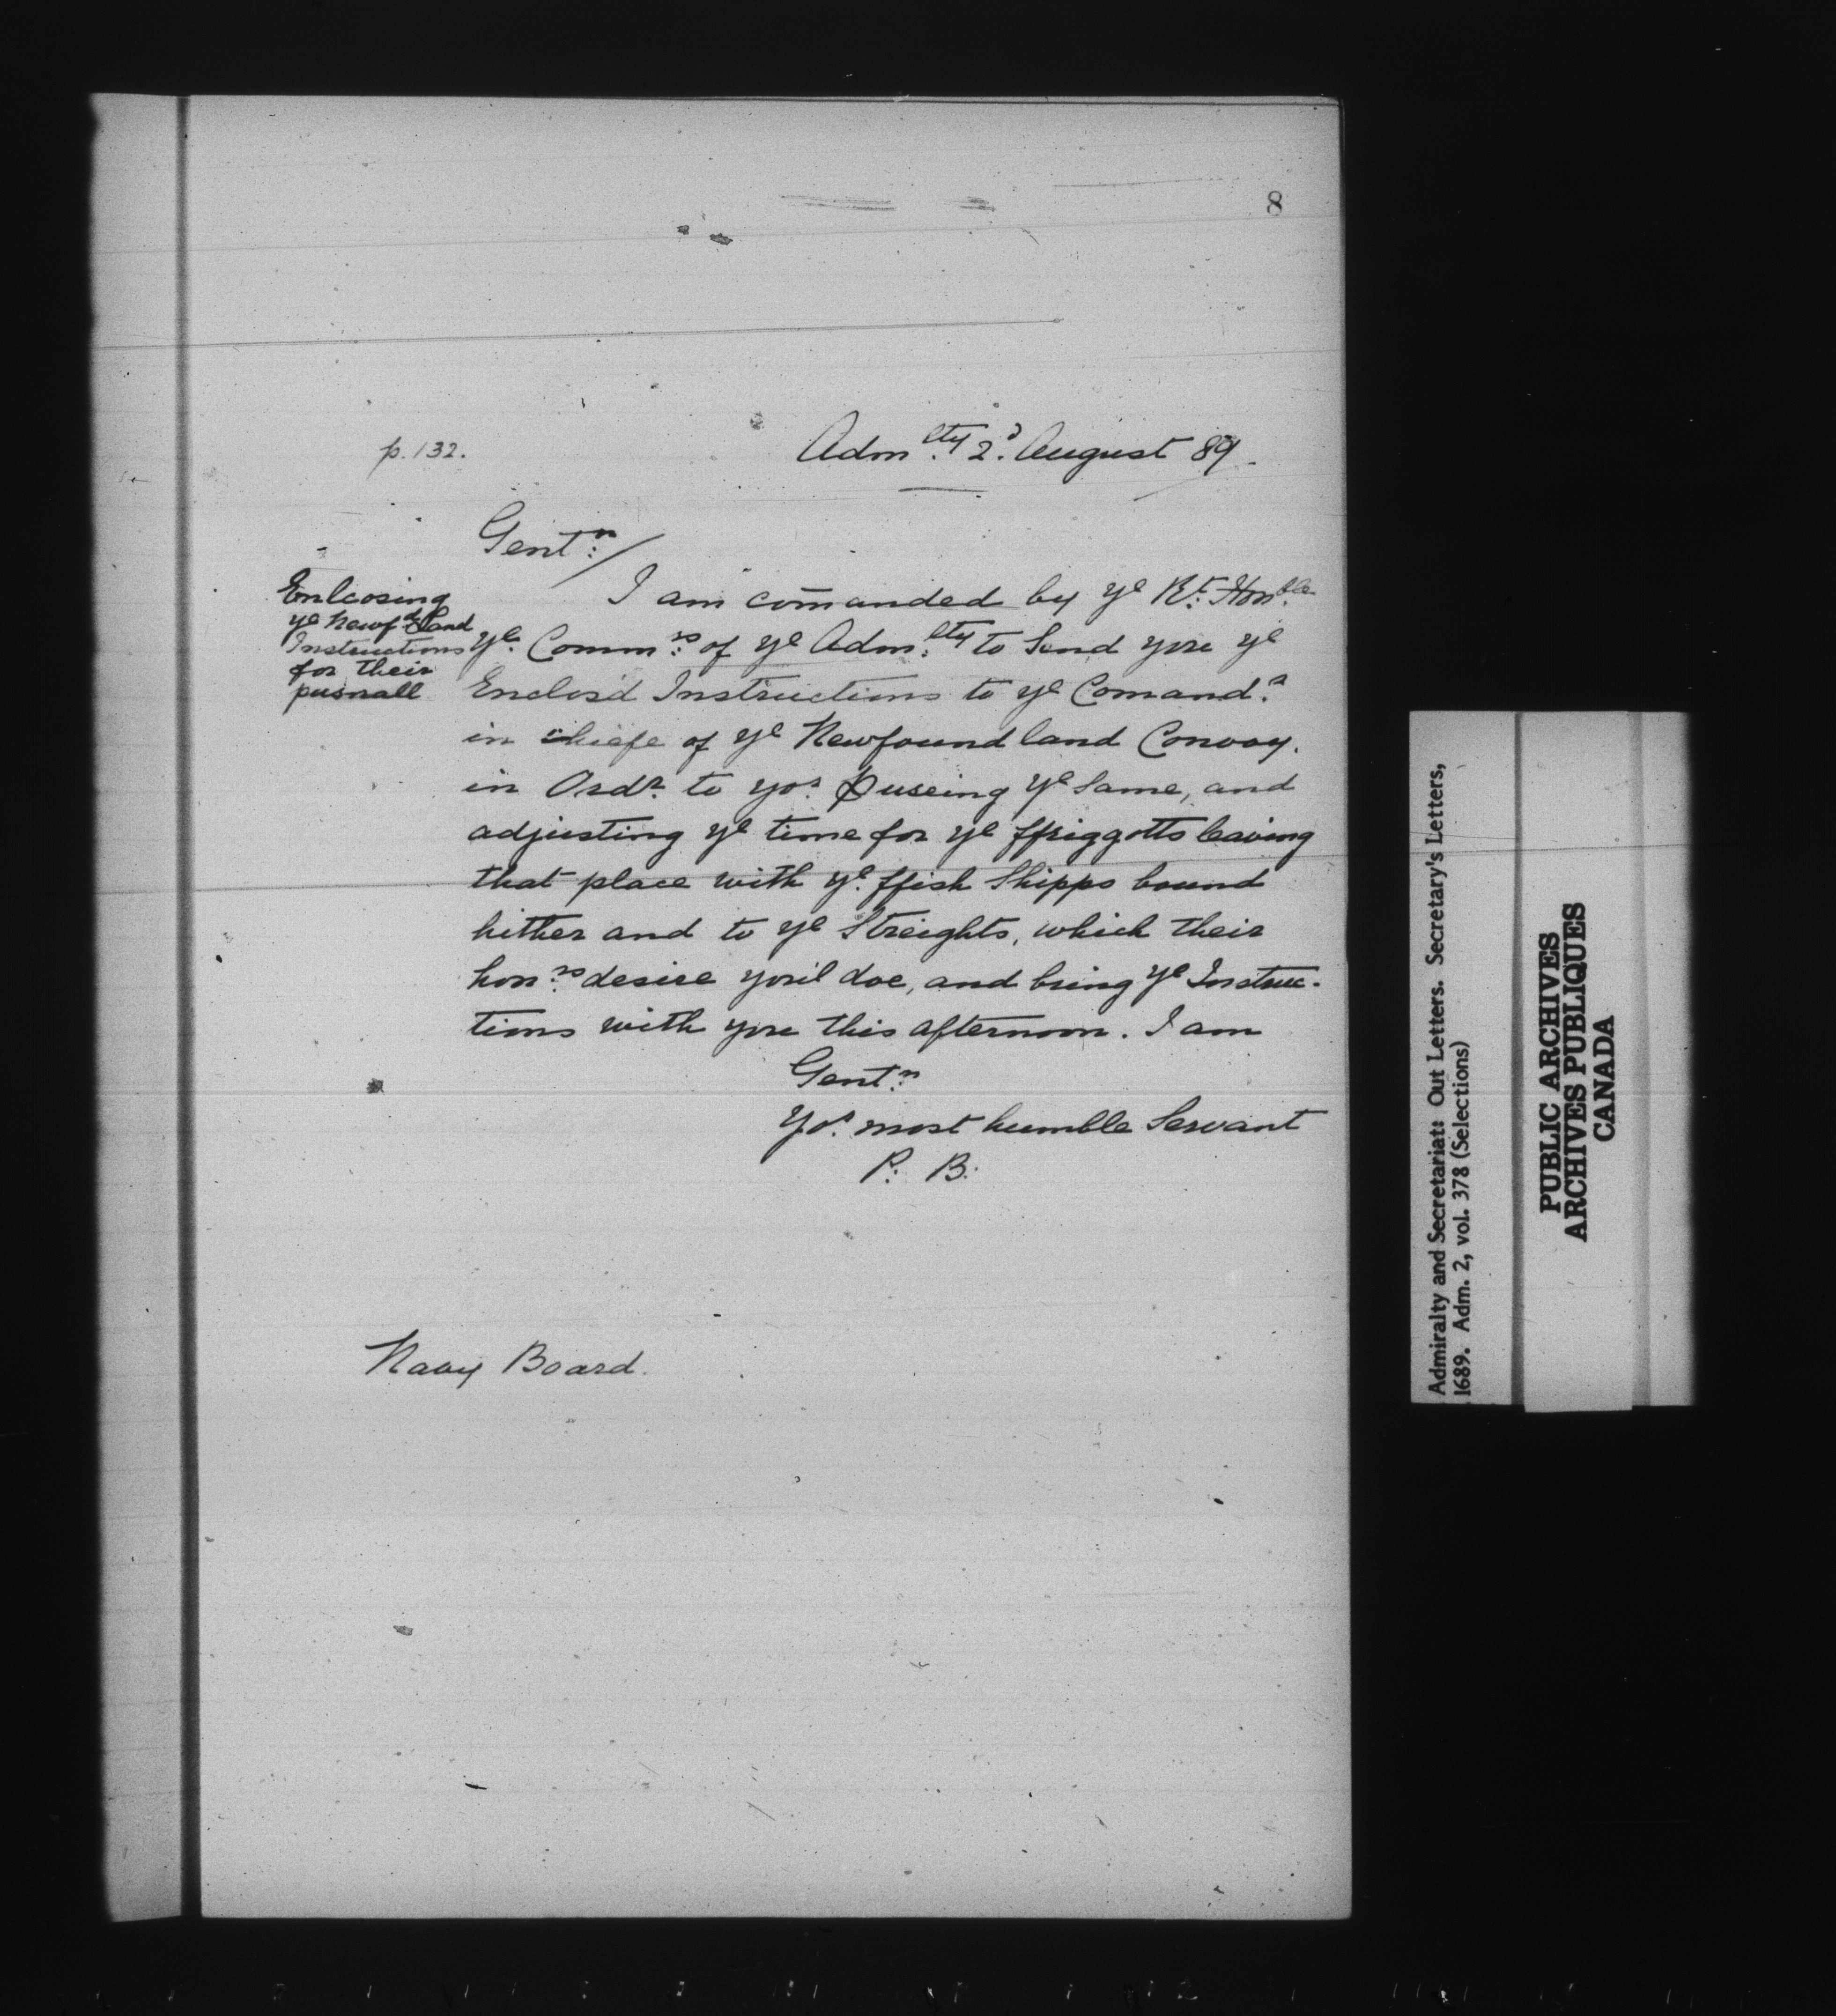 8
p. 132.
Adm:lty 2d. August 89.
Gent:n/
Enlcosing
ye Newfdland
Instructions
for their
pusuall
I am com̄anded by ye Rt: Hon:ble
ye Comm:rs of ye Adm:lty to Send you ye
Enclos'd Instructions to ye Comand:r
in chiefe of ye Newfoundland Convoy.
in Ordr. to yor. puseing ye Same, and
adjusting ye time for ye ffriggotts leaving
that place with ye ffish Shipps bound
hither and to ye Streights, which their
hon:rs desire youil doe, and bring ye Instruc-
tions with you this afternoon. I am
Gent:n
Yor. most humble Servant
P: B:
Navy Board.
Admiralty and Secretariat: Out Letters. Secretary's Letters,
1689. Adm. 2, vol. 378 (Selections)
PUBLIC ARCHIVES
ARCHIVES PUBLIQUES
CANADA